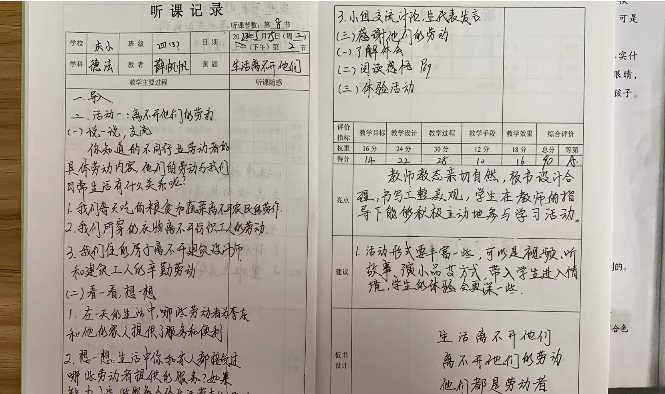 听课记录
听课节数：第 8 节
学校 东小 班级 四(3) 日期
上午(下午)第 2 节
学科 德法 教者 薛帆帆 课题 生活离不开他们
教学主要过程 听课随感
一、导入
二、活动一：离不开他们的劳动
(一)说一说，交流
你知道的不同行业劳动者的
具体劳动内容，他们的劳动与我们
日常生活有什么关系呢？
1.我们每天吃的粮食和蔬菜离不开农民的劳作.
2.我们所穿的衣服离不开纺织工人的劳动.
3.我们住的房子离不开建筑设计师
和建筑工人的辛勤劳动
(二)看一看，想一想
1.在一天的生活中，哪些劳动者为李庆
和他的家人提供了服务和便利
2.想一想：生活中你和家人都接受过
哪些劳动者提供的服务？如果
3.小组交流讨论,生代表发言
(三)感谢他们的劳动
(一)了解
(二)阅读感悟
(三)体验活动
评价指标 教学目标 教学设计 教学过程 教学手段 教学效果 综合评价
权重 16分 24分 30分 12分 18分 总分 等第
得分 14 22 28 10 16 90 A
亮点
教师教态亲切自然，板书设计合
理，书写工整美观，学生在教师的指
导下能够积极主动地参与学习活动。
建议
1.活动形式要丰富一些，可以是视频、听
故事、演小品等方式，带入学生进入情
境，学生的体验会更深一些.
板书设计
生活离不开他们
离不开他们的劳动
他们都是劳动者
可是
实什
眼睛，
孩子。
的。
合色